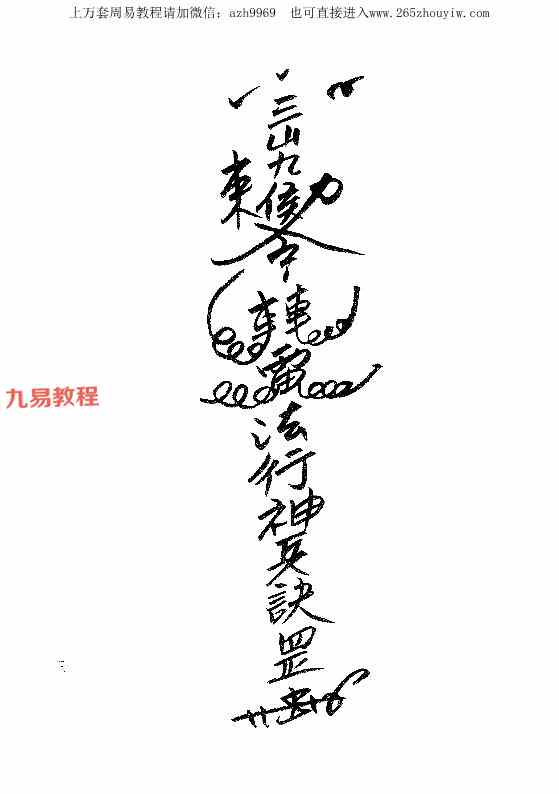 上万套周易教程请加微信：azh9969 也可直接进入www.265zhouyiw.com
三山九侯
敕令
雷
法行神兵訣罡
九易教程